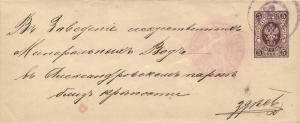 Въ Заведеніе искуственныхъ
Минеральныхъ Водъ
въ Александровскомъ паркѣ
близъ крѣпости
здѣсь
5 5